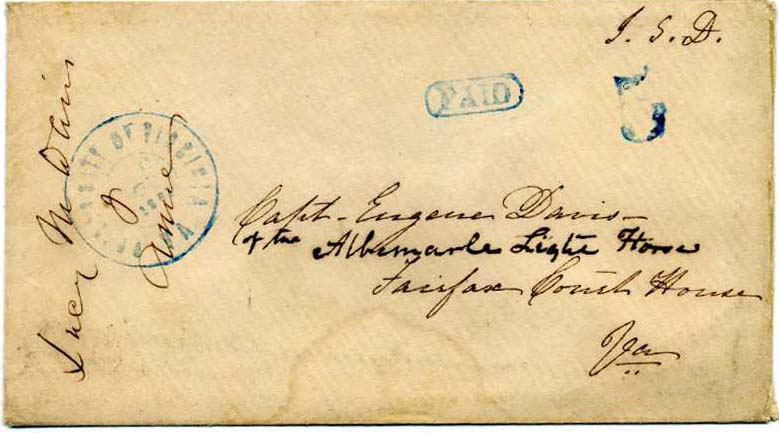 J. S. D.
PAID
5
UNIVERSITY OF VIRGINIA VA
Capt - Eugene Davis -
of the Albemarle Light Horse
Fairfax Court House
Va
Davis
&